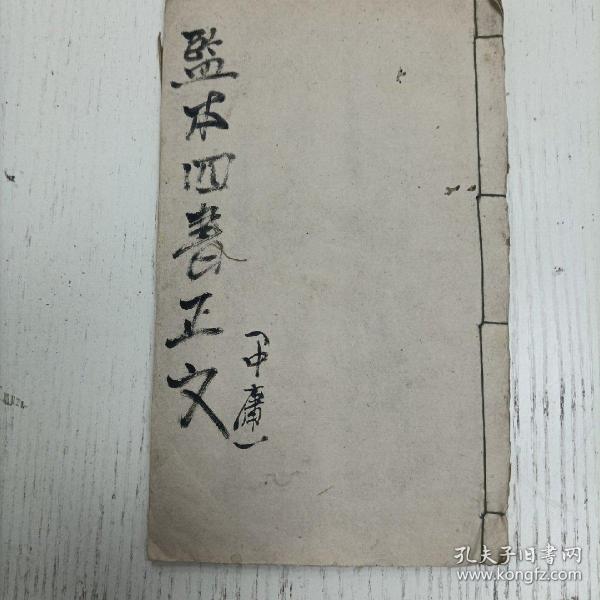 監本四書正文
（中庸）
孔夫子旧书网
www.kongfz.com